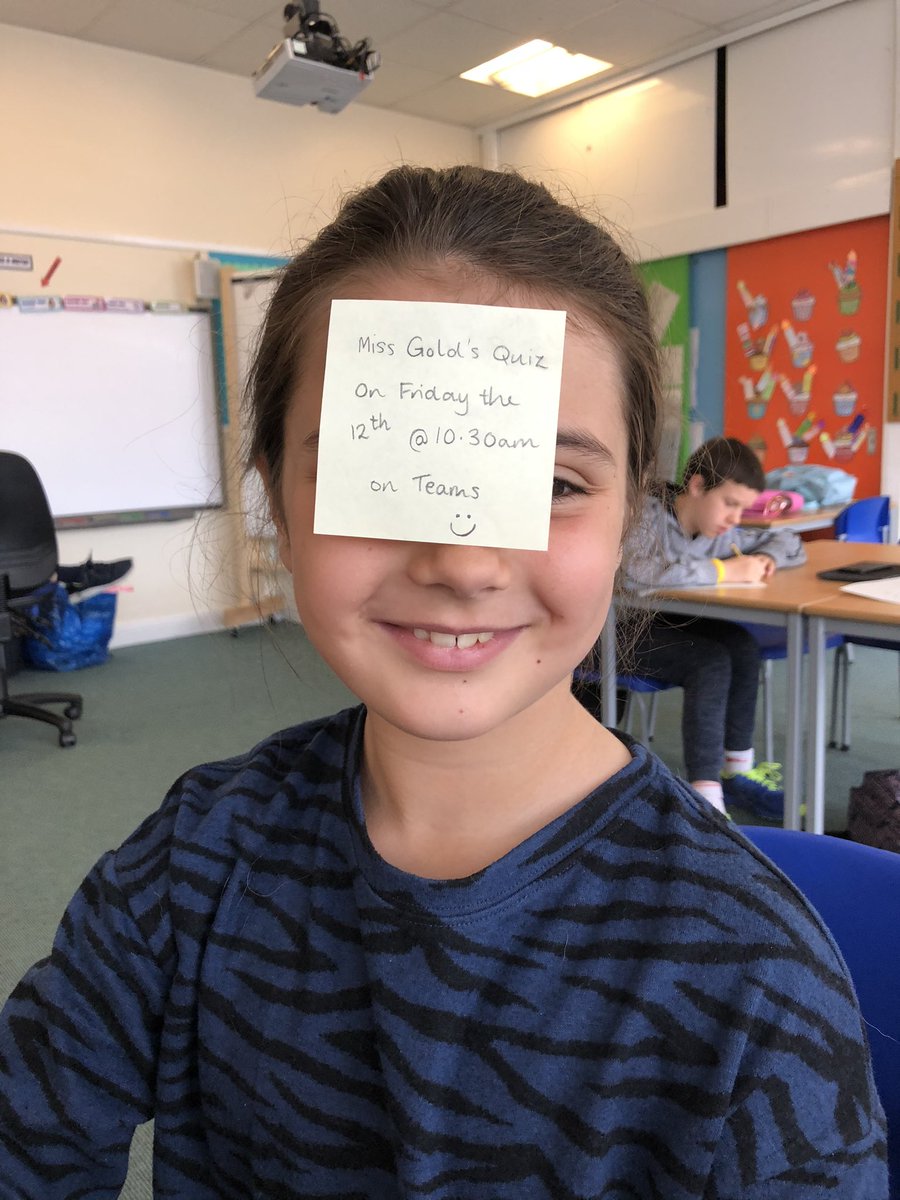 Miss Gold's Quiz
On Friday the
12th @10.30am
on Teams